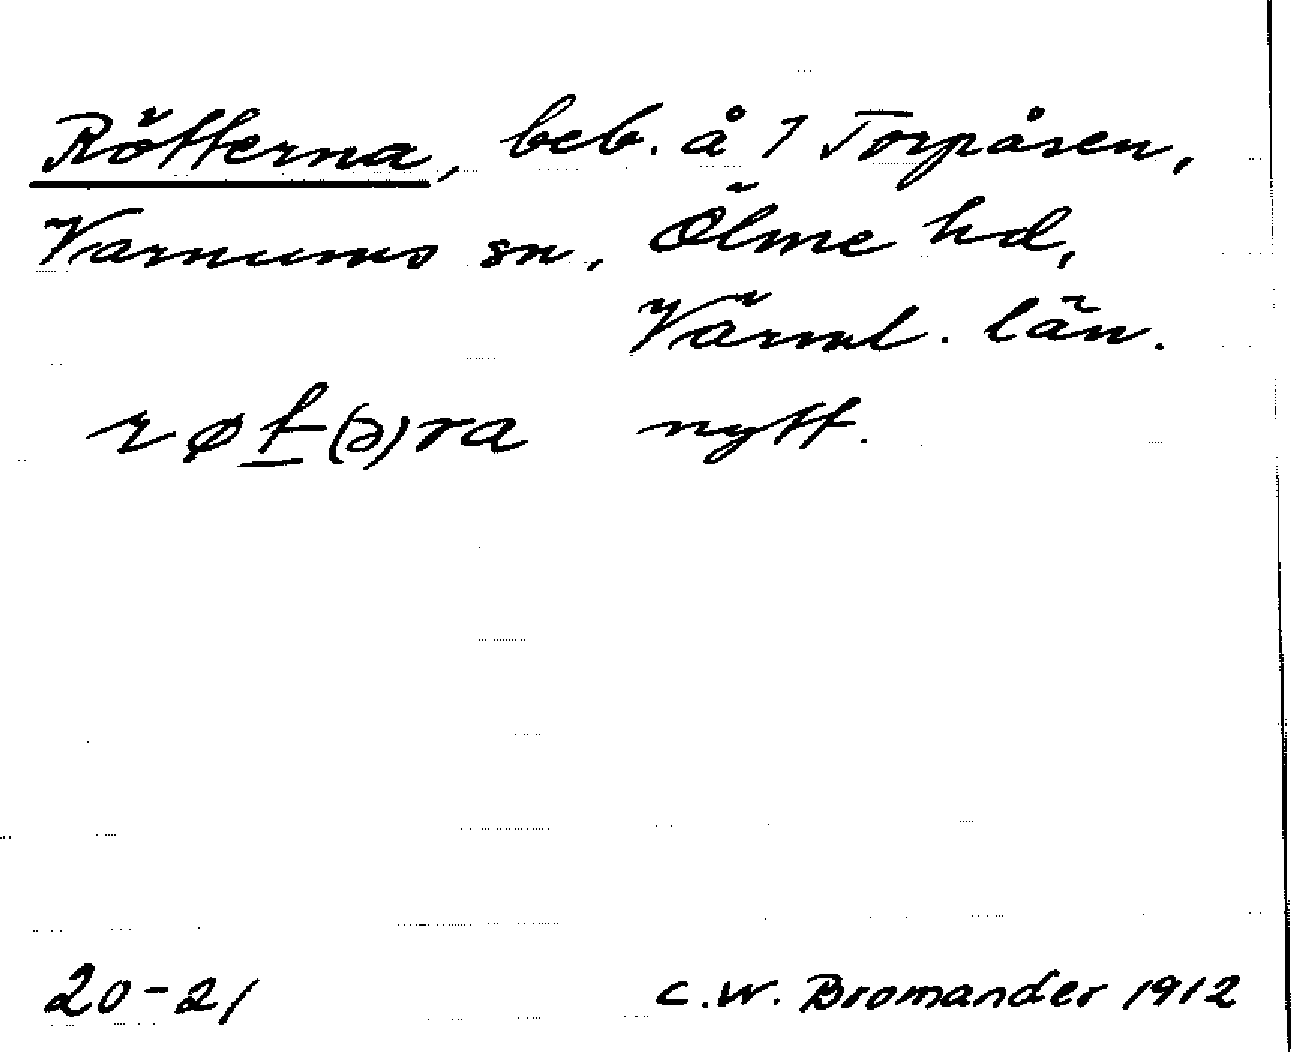 Rötterna, beb. å 1 Torpåsen,
Varnums sn, Ölme hd,
Värml. län.
røt(ə)ra nytt.
20-21 C.W. Bromander 1912